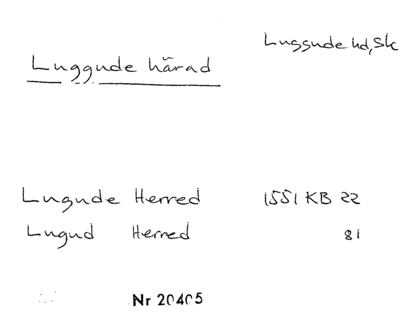 Luggunde hd, Sk
Luggude härad
Lugnude Herred 1551 KB 22
Lugud Herred 81
Nr 20405